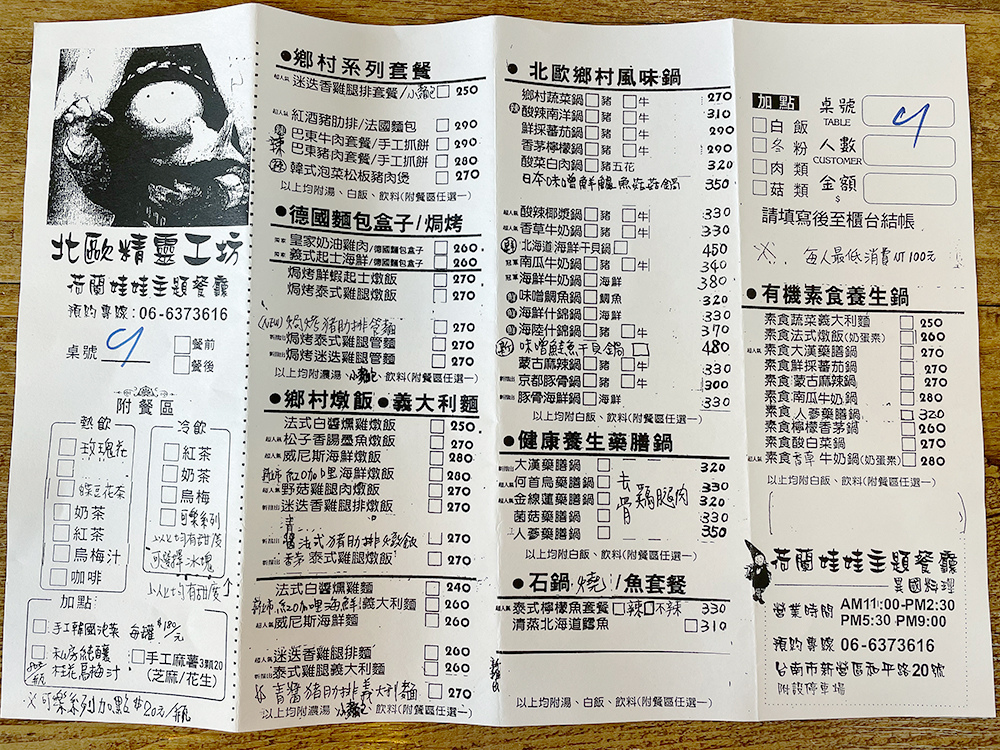 北歐精靈工坊
荷蘭娃娃主題餐廳
預約專線:06-6373616
桌號 4
餐前
餐後
附餐區
熱飲
玫瑰花
豌豆花茶
奶茶
紅茶
烏梅汁
咖啡
冷飲
紅茶
奶茶
烏梅
可樂系列
以上均有甜度
可選擇冰塊
以上均有甜度
加點:
手工韓國泡菜 每罐$180元
私房純釀
桂花烏梅汁
手工麻薯3顆20
(芝麻/花生)
※可樂系列加點$20元/瓶
●鄉村系列套餐
超人氣 迷迭香雞腿排套餐/小麵包 250
超人氣 紅酒豬肋排/法國麵包 290
辣 巴東牛肉套餐/手工抓餅 290
巴東豬肉套餐/手工抓餅 280
韓式泡菜松板豬肉煲 270
以上均附湯、白飯、飲料(附餐區任選一)
●德國麵包盒子/焗烤
獨家 皇家奶油雞肉/德國麵包盒子 260
獨家 義式起士海鮮/德國麵包盒子 260
焗烤鮮蝦起士燉飯 270
焗烤泰式雞腿燉飯 270
(NEW)焗烤豬肋排管麵 270
新推出 焗烤泰式雞腿管麵 270
新推出 焗烤迷迭雞腿管麵 270
以上均附濃湯、小麵包、飲料(附餐區任選一)
●鄉村燉飯●義大利麵
法式白醬燻雞燉飯 250
超人氣 松子香腸墨魚燉飯 270
超人氣 威尼斯海鮮燉飯 280
新上市 紅咖哩海鮮燉飯 280
超人氣 野菇雞腿肉燉飯 270
新推出 迷迭香雞腿排燉飯 270
青醬法式豬肋排燉飯 270
香茅泰式雞腿燉飯 270
法式白醬燻雞麵 240
新上市 紅咖哩海鮮義大利麵 260
超人氣 威尼斯海鮮麵 260
超人氣 迷迭香雞腿排麵 260
泰式雞腿義大利麵 260
青醬豬肋排義大利麵 270
以上均附濃湯、小麵包、飲料(附餐區任選一)
●北歐鄉村風味鍋
鄉村蔬菜鍋 豬 牛 270
辣 酸辣南洋鍋 豬 牛 310
鮮採蕃茄鍋 豬 牛 290
香茅檸檬鍋 豬 牛 290
酸菜白肉鍋 豬五花 320
日本味噌鮮鱸魚菇菇鍋 350
超人氣 酸辣椰漿鍋 豬 牛 330
超人氣 香草牛奶鍋 豬 牛 330
北海道海鮮干貝鍋 450
冠軍 南瓜牛奶鍋 豬 牛 340
冠軍 海鮮牛奶鍋 海鮮 380
味噌鯛魚鍋 鯛魚 320
海鮮什錦鍋 海鮮 330
海陸什錦鍋 豬 牛 370
新 味噌鮭魚干貝鍋 480
蒙古麻辣鍋 豬 牛 330
新推出 京都豚骨鍋 豬 牛 300
豚骨海鮮鍋 海鮮 330
以上均附白飯、飲料(附餐區任選一)
●健康養生藥膳鍋
大漢藥膳鍋 320
超人氣 何首烏藥膳鍋 330
超人氣 金線蓮藥膳鍋 320
菌菇藥膳鍋 330
人蔘藥膳鍋 350
去骨雞腿肉
以上均附白飯、飲料(附餐區任選一)
●石鍋(燒)/魚套餐
超人氣 泰式檸檬魚套餐 辣 不辣 330
清蒸北海道鱈魚 310
以上均附湯、白飯、飲料(附餐區任選一)
加點
白飯
冬粉
肉類
菇類
桌號
TABLE
4
人數
CUSTOMER
金額
$
請填寫後至櫃台結帳
※. 每人最低消費NT100元
●有機素食養生鍋
素食蔬菜義大利麵 250
素食法式燉飯(奶蛋素) 260
超人氣 素食大漢藥膳鍋 270
素食鮮採蕃茄鍋 270
素食蒙古麻辣鍋 270
素食南瓜牛奶鍋 280
素食人蔘藥膳鍋 320
素食檸檬香茅鍋 260
素食酸白菜鍋 270
超人氣 素食香草牛奶鍋(奶蛋素) 280
以上均附白飯、飲料(附餐區任選一)
荷蘭娃娃主題餐廳
異國料理
營業時間 AM11:00-PM2:30
PM5:30 PM9:00
預約專線 06-6373616
台南市新營區西平路20號
附設停車場